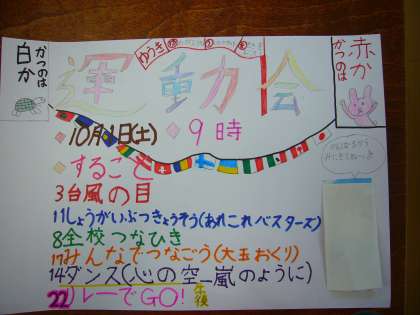 運動会
かつのは
白か
赤か
かつのは
10月1日(土) 9時
することと
3台風の目
11しょうがいぶつきょうそう(あれこれバスターズ)
8全校つなひき
17みんなでつなごう(大玉おくり)
14ダンス(心の空_嵐のように)
22リレーでGO!
午後